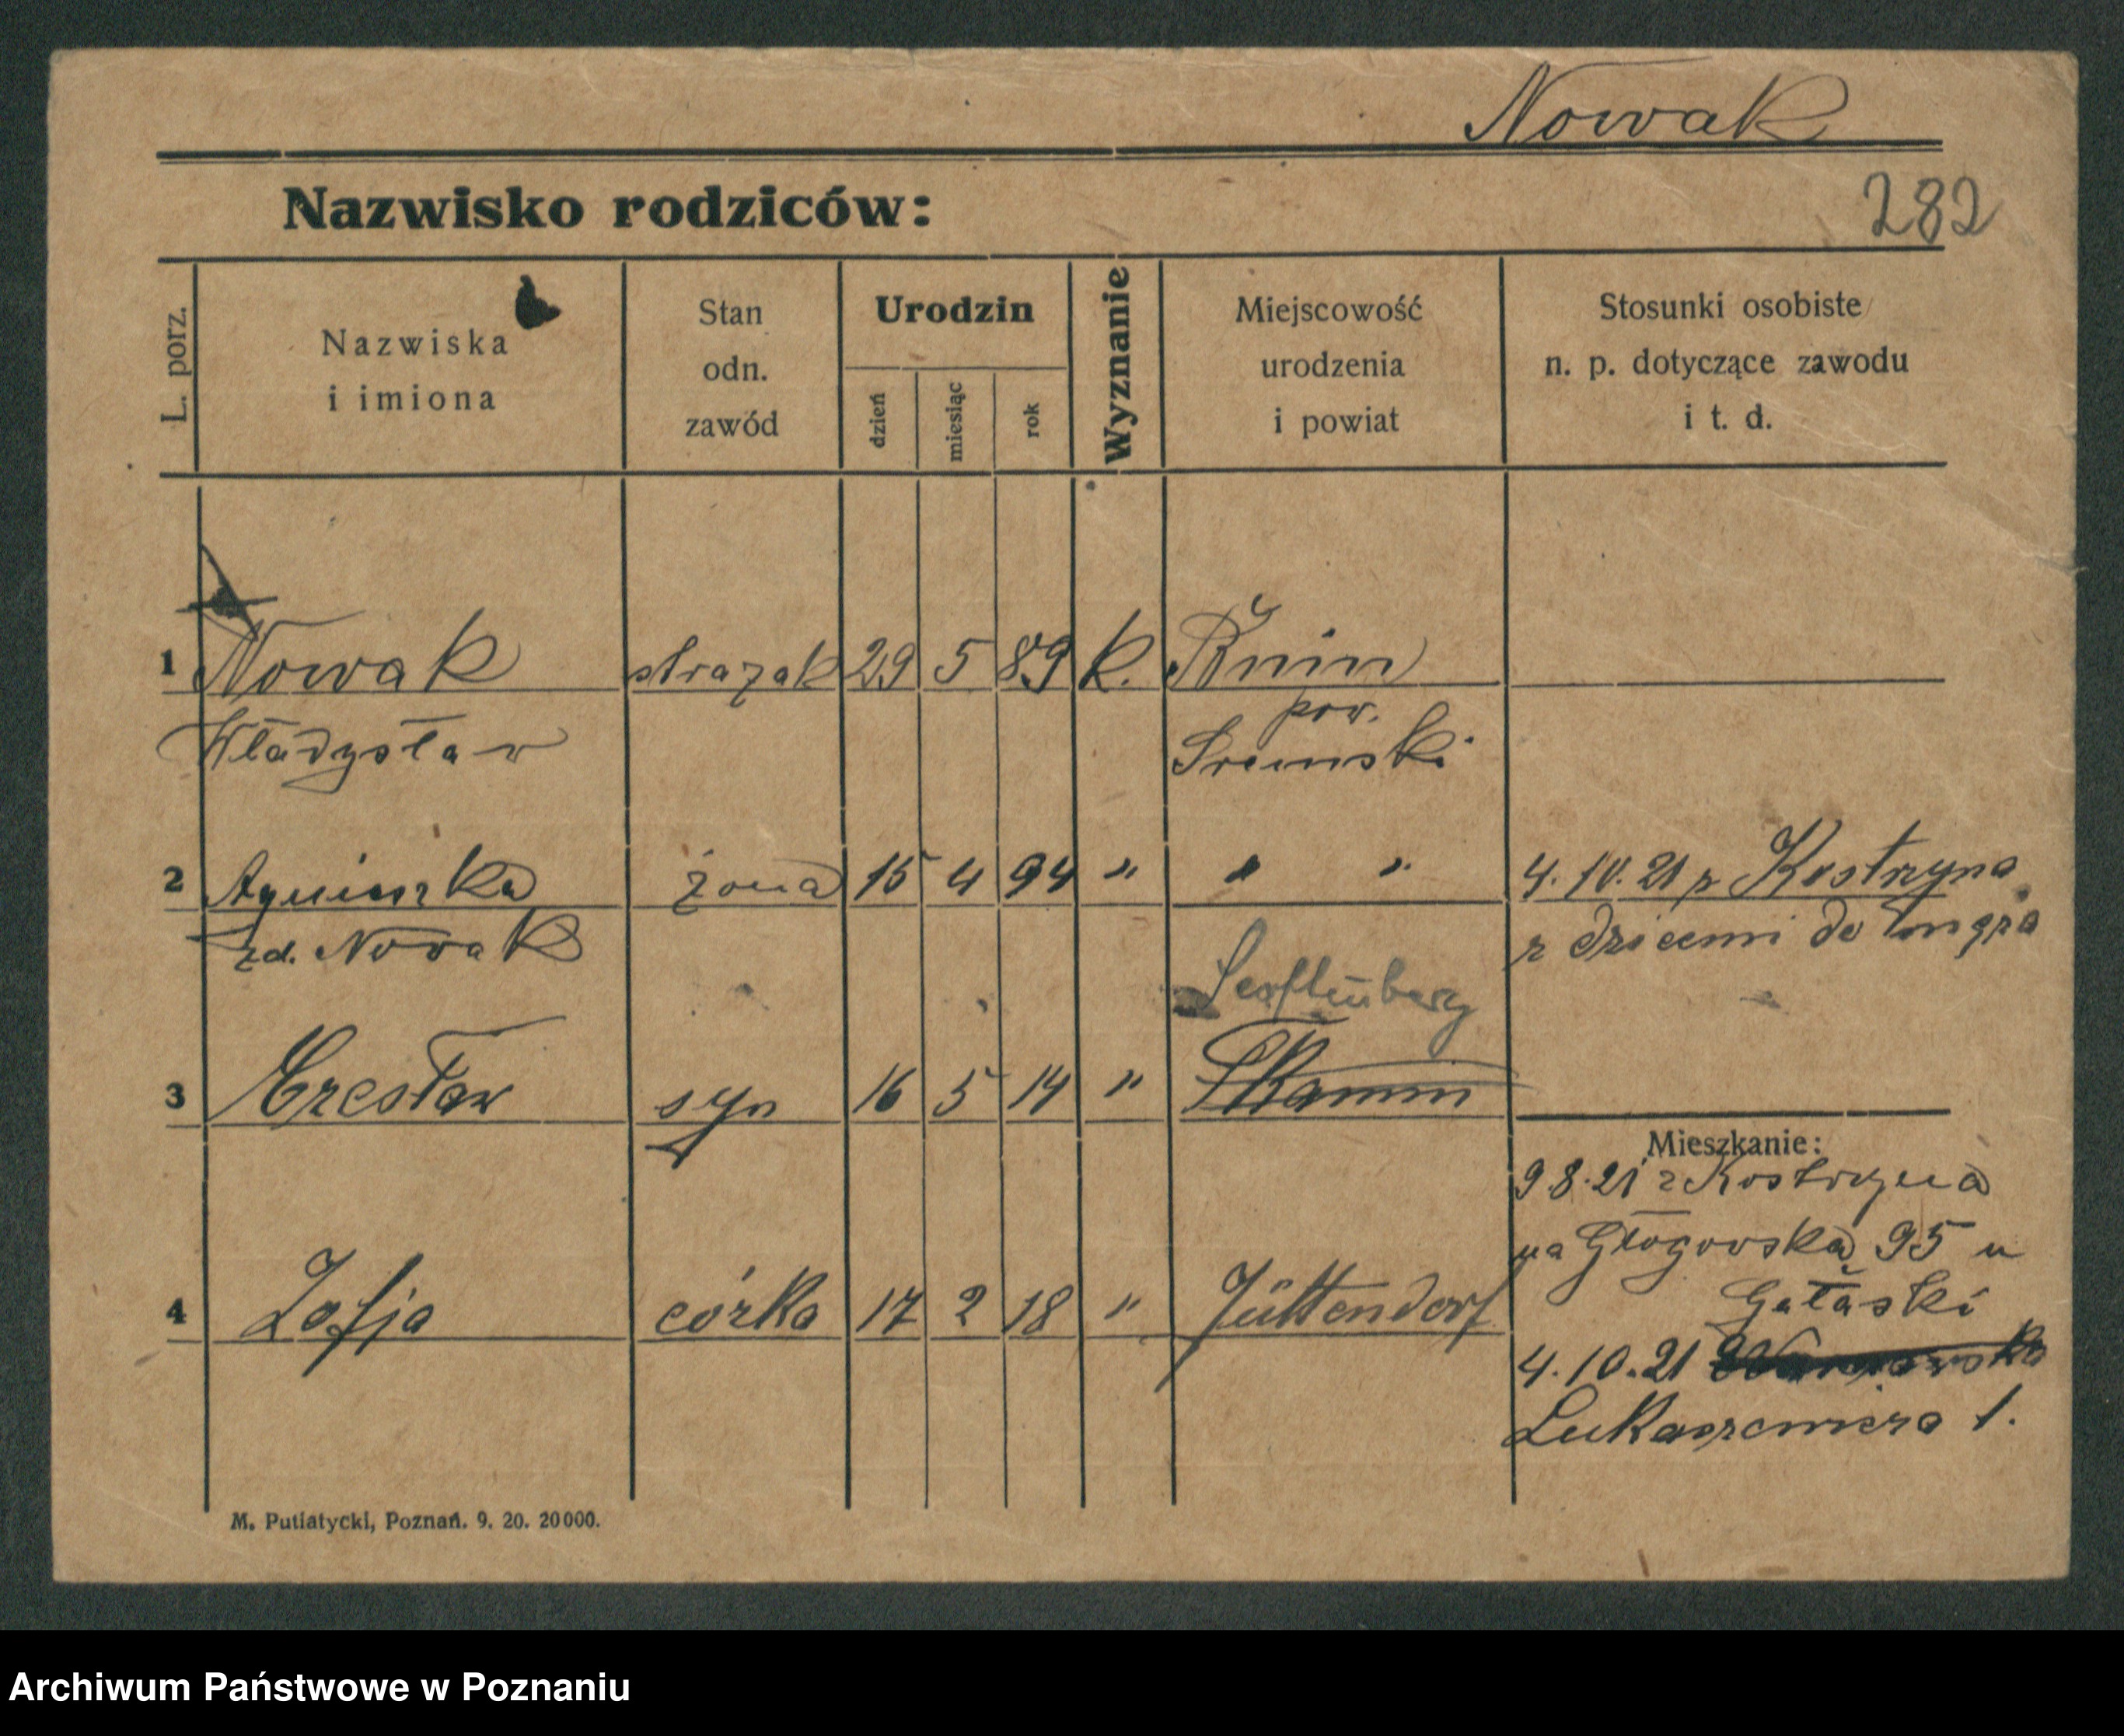 Nowak
Nazwisko rodziców:
282
L. porz.
Nazwiska
i imiona
Stan
odn.
zawód
Urodzin
dzień
miesiąc
rok
Wyznanie
Miejscowość
urodzenia
i powiat
Stosunki osobiste
n. p. dotyczące zawodu
i t. d.
1 Nowak strazak 29 5 89 k. Bnin
Władysław
pow.
Sremski
2 Agnieszka żona 15 4 94 " " " 4.10.21 z Kostrzyna
zd. Nowak
z dziecmi do męża
Senftenberg
3 Czesław syn 16 5 14 "
Mieszkanie:
9.8.21 z Kostrzyna
na Głogowską 95 u
4 Zofja córka 17 2 18 " Jüttendorf
Gałaski
4.10.21
Lukaszewicza 1.
M. Putiatycki, Poznań. 9. 20. 20000.
Archiwum Państwowe w Poznaniu